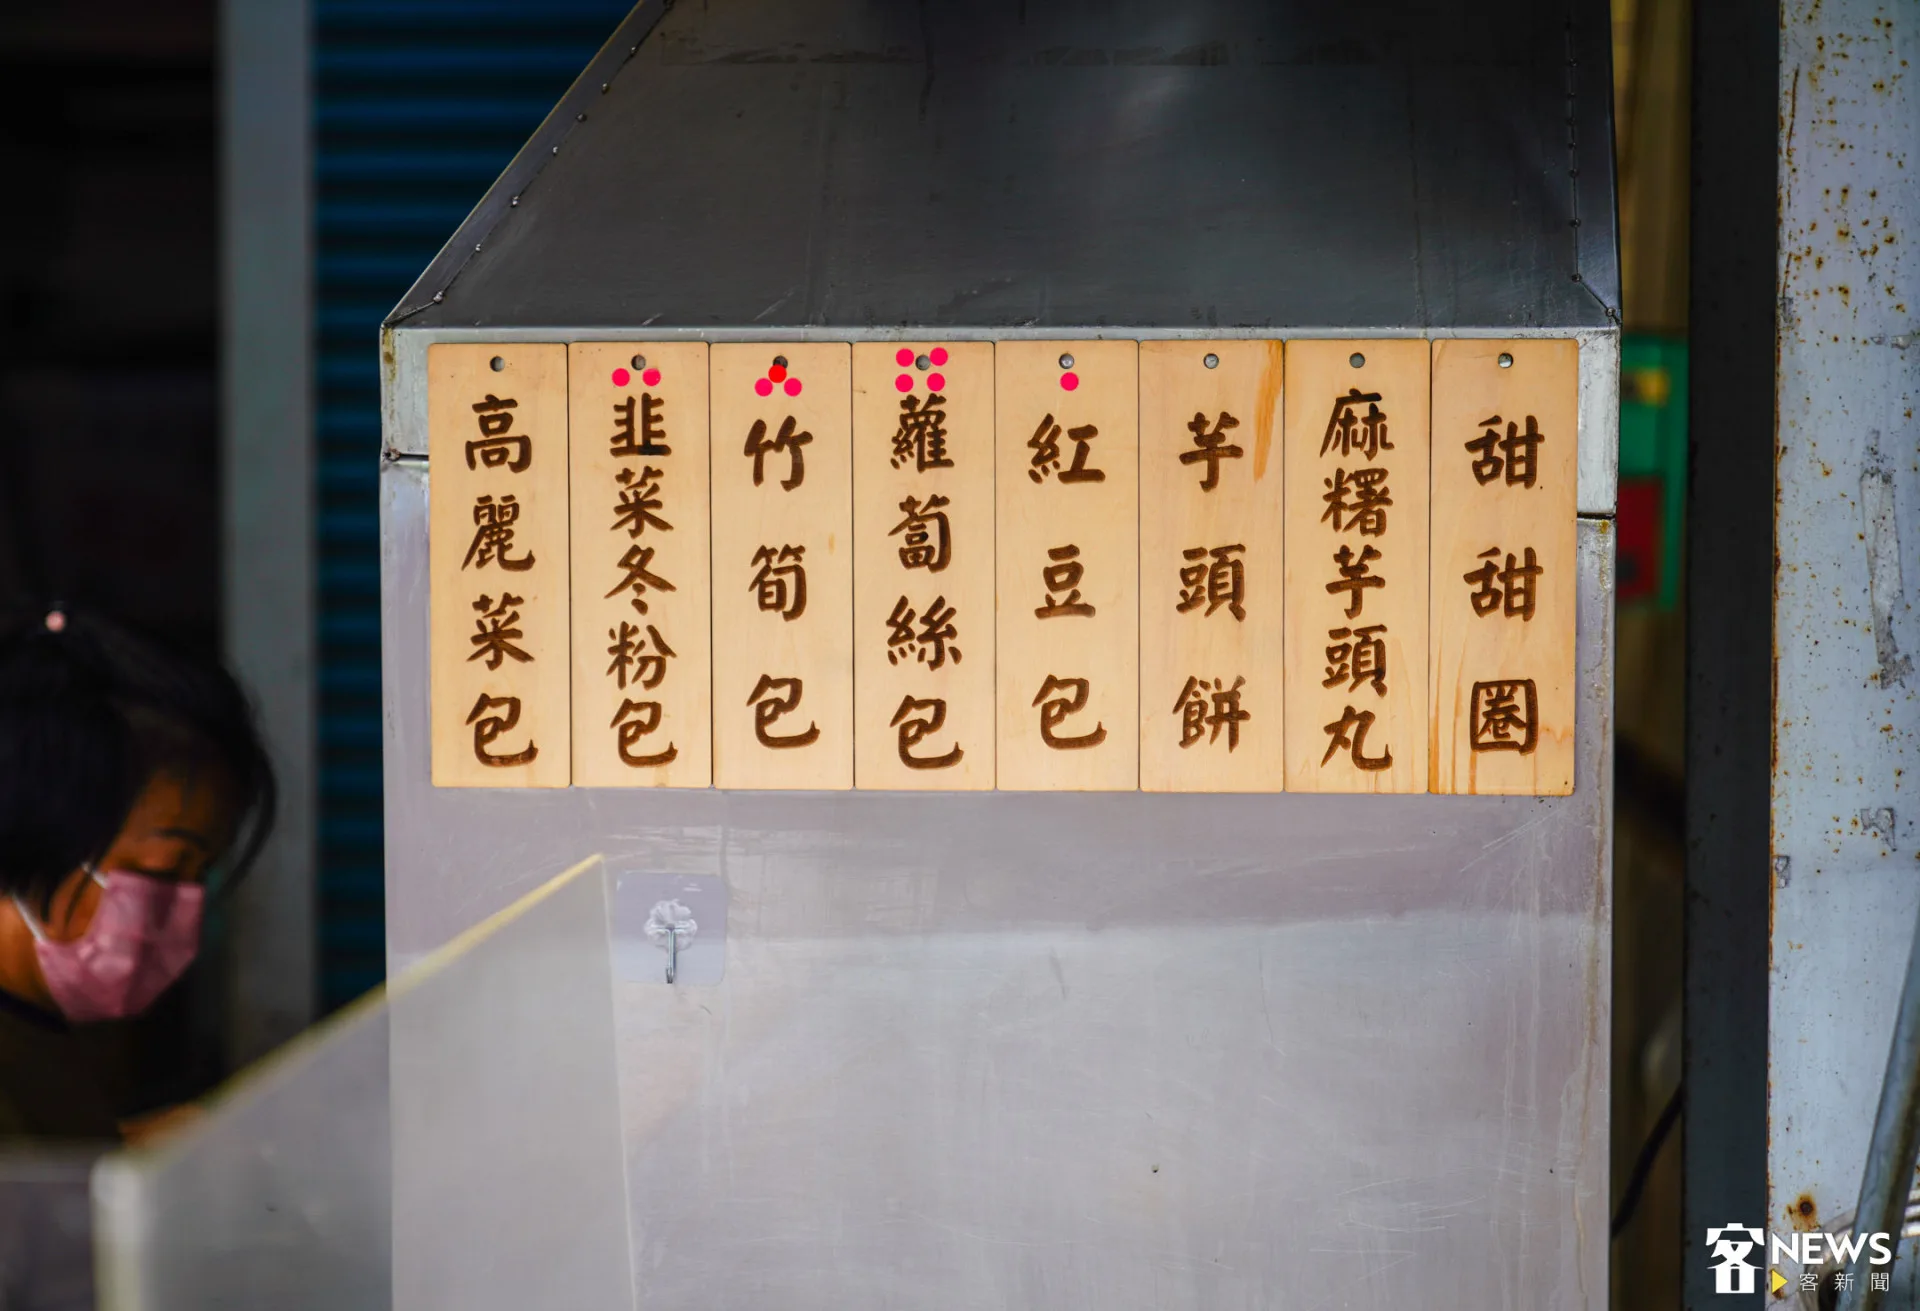 高麗菜包
韭菜冬粉包
竹筍包
蘿蔔絲包
紅豆包
芋頭餅
麻糬芋頭丸
甜甜圈
客NEWS
客新聞